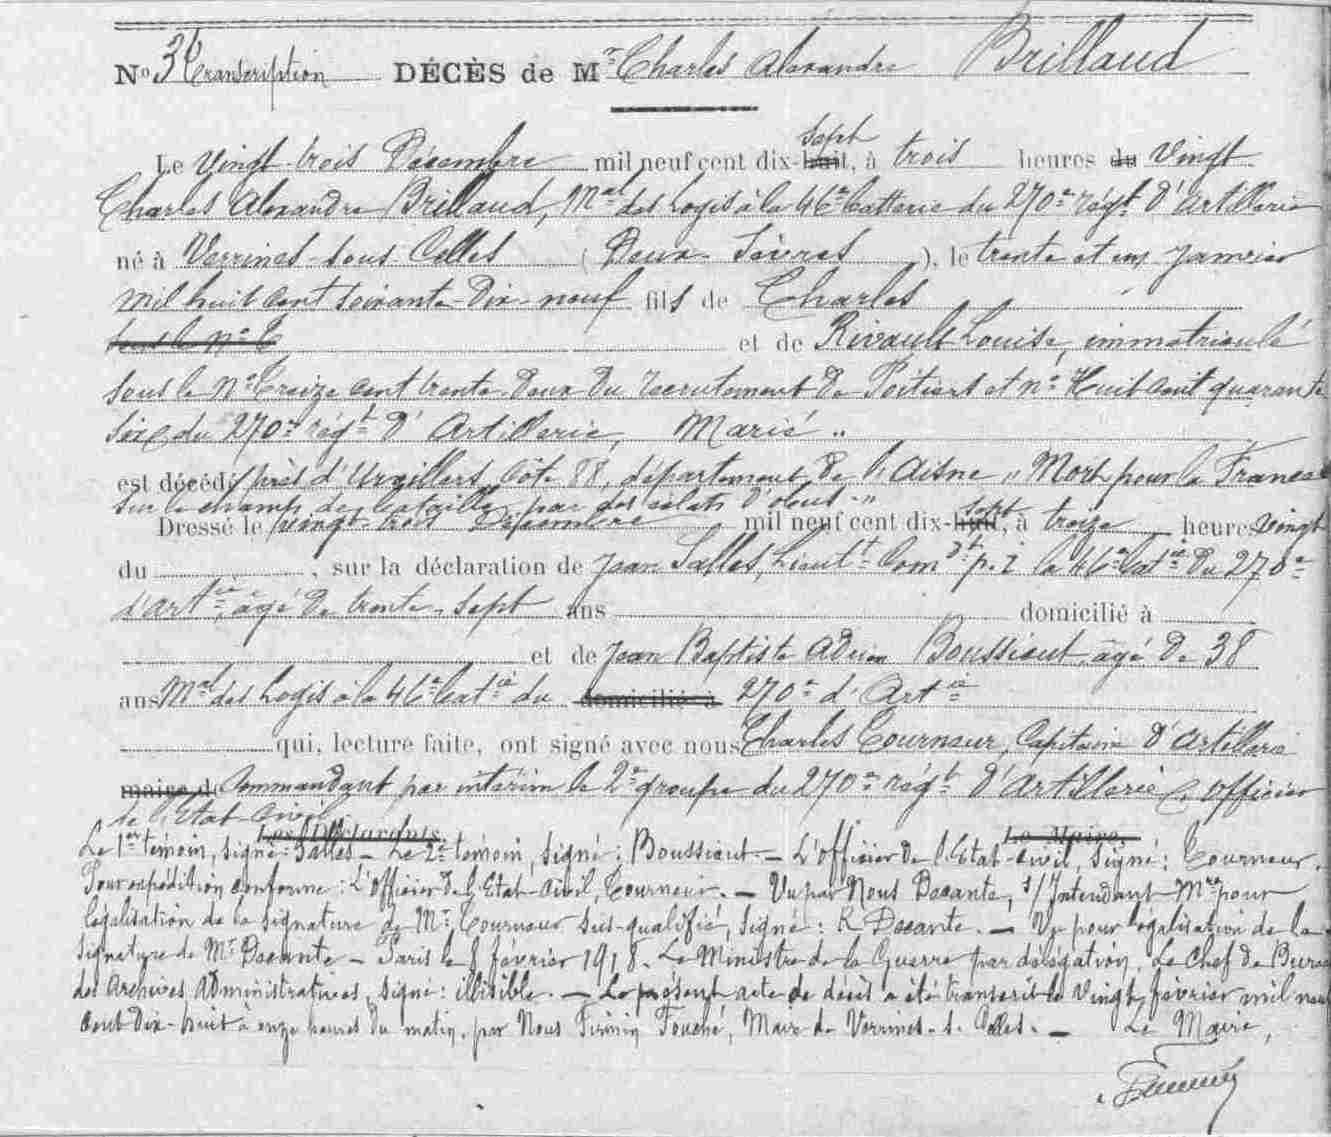 No 3 Transcription DÉCÈS de Mr Charles Alexandre Brillaud
Le Vingt-trois Décembre mil neuf cent dix-huit, sept à trois heures du Vingt
Charles Alexandre Brillaud, Mal des Logis à la 46e batterie du 270e régt d'Artillerie
né à Verrines-sous-Celles (Deux-Sèvres), le trente et un Janvier
mil huit cent soixante-dix-neuf fils de Charles
sous le no T et de Rivault Louise, immatriculé
sous le No Treize cent trente-deux du recrutement de Poitiers et no Huit cent quarante
six du 270e régt d'Artillerie, Marié "
est décédé près d'Urvillers, Côte 88, département de l'Aisne, "Mort pour la France"
sur le champ de bataille, par des éclats d'obus "
Dressé le vingt-trois Décembre mil neuf cent dix-huit, sept à treize heures vingt
du , sur la déclaration de Jean Salles, Lieutt Comdt p. i. la 46e batie du 270e
d'artie, âgé de trente-sept ans domicilié à
et de Jean Baptiste Adrien Boussiout, âgé de 38
ans Mal des Logis à la 46e batie du domicilié à 270e d'Artie
qui, lecture faite, ont signé avec nous Charles Tourneur, Capitaine d'Artillerie
maire de Commandant par intérim le 2e groupe du 270e régt d'Artillerie Officier
de l'Etat-Civil
Les Déclarants, Le Maire,
Le 1er témoin, signé: Salles — Le 2e témoin, signé: Boussiout. — L'officier de l'Etat-Civil, signé: Tourneur.
Pour expédition conforme: L'Officier de l'Etat-Civil, Tourneur. — Vu par Nous Decante, s/Intendant Mre pour
légalisation de la signature de Mr Tourneur sus-qualifié, signé: R Decante. — Vu pour légalisation de la
signature de Mr Decante — Paris le 8 février 1918. Le Ministre de la Guerre par délégation. Le Chef de Bureau
des Archives Administratives, signé: illisible. — Le présent acte de décès a été transcrit le Vingt février mil neuf
cent dix-huit à onze heures du matin, par Nous Firmin Fouché, Maire de Verrines-s.-Celles. — Le Maire,